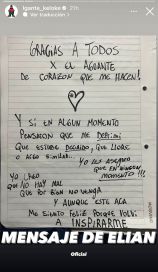 lgante_keloke 21h
Ver traducción >
GRACIAS A TODOS
X EL AGUANTE
DE CORAZÓN QUE ME HACEN!
Y SI EN ALGUN MOMENTO
PENSARON QUE ME DEPRIMI
QUE ESTABA DECAIDO, QUE LLORE
O ALGO SIMILAR..
YO LES ASEGURO
QUE EN NINGUN
MOMENTO !!!
YO CREO
QUE NO HAY MAL
QUE POR BIEN NO VENGA
Y AUNQUE ESTE ACA
ME SIENTO FELIZ PORQUE VOLVI
A INSPIRARME
MENSAJE DE ELIAN
Oficial